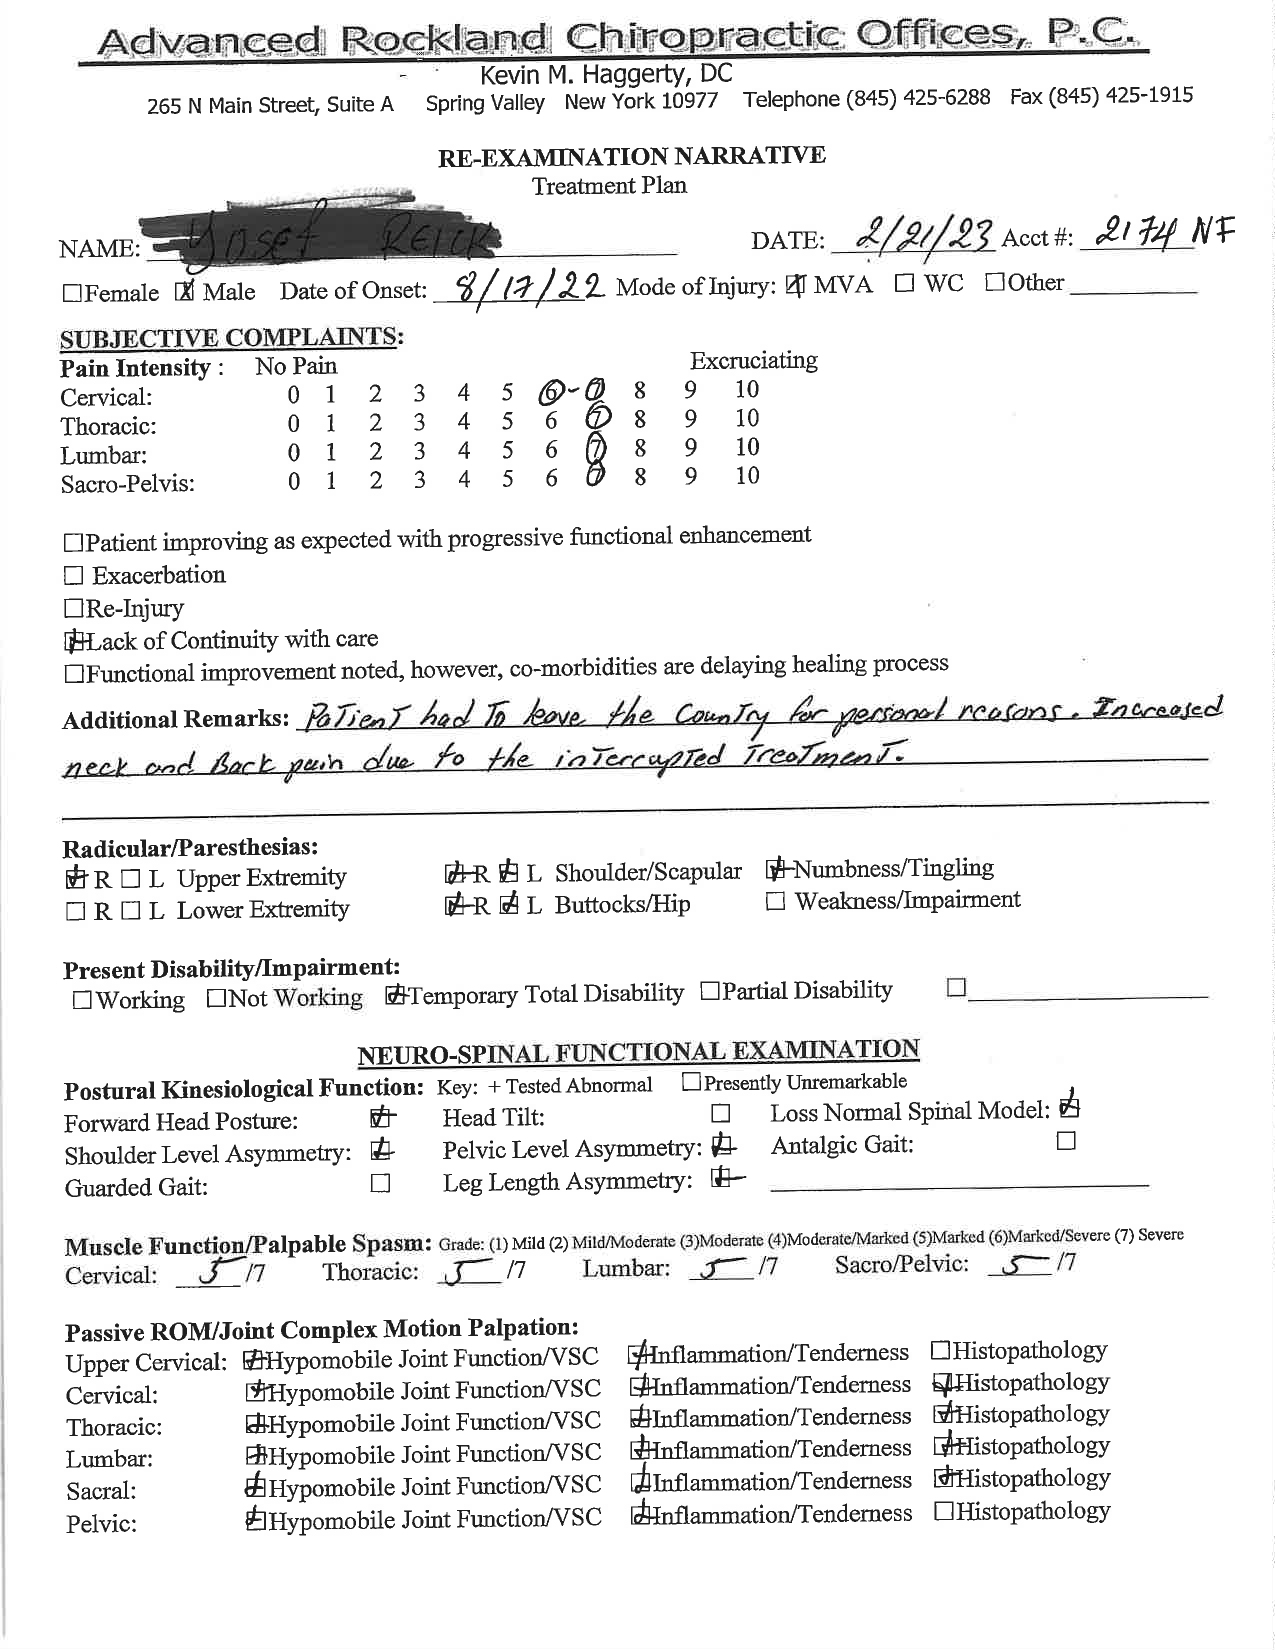 Advanced Rockland Chiropractic Offices, P.C.
Kevin M. Haggerty, DC
265 N Main Street, Suite A Spring Valley New York 10977 Telephone (845) 425-6288 Fax (845) 425-1915
RE-EXAMINATION NARRATIVE
Treatment Plan
NAME: DATE: 2/21/23 Acct #: 2174 NF
☐Female ☒ Male Date of Onset: 8/17/22 Mode of Injury: ☒ MVA ☐ WC ☐Other
SUBJECTIVE COMPLAINTS:
Pain Intensity : No Pain Excruciating
Cervical: 0 1 2 3 4 5 6-7 8 9 10
Thoracic: 0 1 2 3 4 5 6 7 8 9 10
Lumbar: 0 1 2 3 4 5 6 7 8 9 10
Sacro-Pelvis: 0 1 2 3 4 5 6 7 8 9 10
☐Patient improving as expected with progressive functional enhancement
☐ Exacerbation
☐Re-Injury
☒Lack of Continuity with care
☐Functional improvement noted, however, co-morbidities are delaying healing process
Additional Remarks: Patient had to leave the country for personal reasons. Increased
neck and Back pain due to the interrupted treatment.
Radicular/Paresthesias:
☒ R ☐ L Upper Extremity ☒ R ☒ L Shoulder/Scapular ☒Numbness/Tingling
☐ R ☐ L Lower Extremity ☒ R ☒ L Buttocks/Hip ☐ Weakness/Impairment
Present Disability/Impairment:
☐Working ☐Not Working ☒Temporary Total Disability ☐Partial Disability ☐
NEURO-SPINAL FUNCTIONAL EXAMINATION
Postural Kinesiological Function: Key: + Tested Abnormal ☐Presently Unremarkable
Forward Head Posture: ☒ Head Tilt: ☐ Loss Normal Spinal Model: ☒
Shoulder Level Asymmetry: ☒ Pelvic Level Asymmetry: ☒ Antalgic Gait: ☐
Guarded Gait: ☐ Leg Length Asymmetry: ☒
Muscle Function/Palpable Spasm: Grade: (1) Mild (2) Mild/Moderate (3)Moderate (4)Moderate/Marked (5)Marked (6)Marked/Severe (7) Severe
Cervical: 5 /7 Thoracic: 5 /7 Lumbar: 5 /7 Sacro/Pelvic: 5 /7
Passive ROM/Joint Complex Motion Palpation:
Upper Cervical: ☒Hypomobile Joint Function/VSC ☒Inflammation/Tenderness ☐Histopathology
Cervical: ☒Hypomobile Joint Function/VSC ☒Inflammation/Tenderness ☒Histopathology
Thoracic: ☒Hypomobile Joint Function/VSC ☒Inflammation/Tenderness ☒Histopathology
Lumbar: ☒Hypomobile Joint Function/VSC ☒Inflammation/Tenderness ☒Histopathology
Sacral: ☒Hypomobile Joint Function/VSC ☒Inflammation/Tenderness ☒Histopathology
Pelvic: ☒Hypomobile Joint Function/VSC ☒Inflammation/Tenderness ☐Histopathology